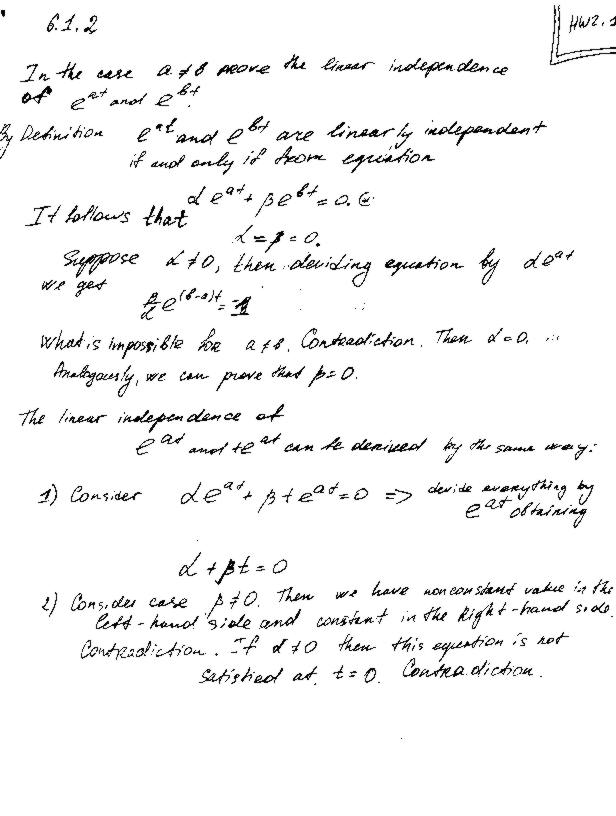 6.1.2
HW2.
In the case a ≠ b prove the linear independence
of e^{at} and e^{bt}.
By Definition e^{at} and e^{bt} are linearly independent
if and only if from equation
αe^{at} + βe^{bt} = 0.
It follows that
α = β = 0.
Suppose α ≠ 0, then deviding equation by αe^{at}
we get
β/α e^{(b-a)t} = -1
What is impossible for a ≠ b. Contradiction. Then α = 0.
Analogously, we can prove that β = 0.
The linear independence of
e^{at} and te^{at} can be derived by the same way:
1) Consider αe^{at} + βte^{at} = 0 => devide everything by
e^{at} obtaining
α + βt = 0
2) Consider case β ≠ 0. Then we have nonconstant value in the
left-hand side and constant in the Right-hand side.
Contradiction. If α ≠ 0 then this equation is not
satisfied at t = 0. Contradiction.